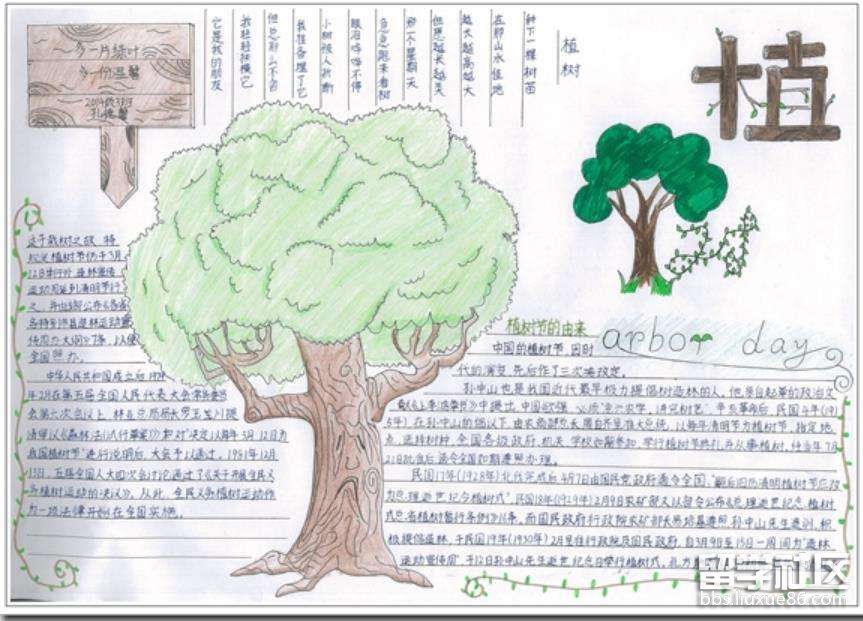 多一片绿叶
多一份温馨
植树
种下一棵树苗
在那山水佳地
越大越高越大
但愿越长越美
那一个星期天
急急跑来看树
眼泪哗哗不停
小树被人折断
我轻轻扶稳它
它是我的朋友
植
树
节
arbor day
植树节的由来
中国的植树节，因时
代的演变，先后作了三次
孙中山也是我国近代最早极力提倡树造林的人，他亲自起草的政治文
中提出，中国欲强
5年）在孙中山的倡议下，由农商部总长周自齐呈准大总统，以每年清明节为植树节，指定地
点，选择树种，全国各级政府，机关，学校如期参加，举行植树节典礼并从事植树，
21日批准后通令全国如期遵照办理。
民国17年（1928年）北伐完成后，4月7日由国民党政府通令全国
为总理逝世纪念植树式”，民国18年（1929年）2月9日农矿部又以部令公布《总理逝世纪念植树
式各省植树暂行条例》16条，而国民政府行政院农矿部长易培基遵照孙中山先生遗训，积
极提倡造林，于民国19年（1930年）2月呈准行政院及国民政府，自3月9日至15日一周间为“造林
运动宣传周”，于12日孙中山先生逝世纪念日举行植树式，
这于栽树之故，特
规定植树节仍于3月
12日举行外，造林宣传
运动周延到清明节行
全国照办。
中华人民共和国成立后，1979
年2月在第五届全国人民代表大会常务委员
会第六次会议上，林业总局局长罗玉川提
请审议《森林法（试行草案）》和“决定以每年3月12日为
我国植树节”进行说明后，大会予以通过。1981年12月
13日，五届全国人大四次会议讨论通过了《关于开展全民义
务植树运动的决议》。从此，全民义务植树运动作
为一项法律开始在全国实施。
留学社区
bbs.liuxue86.com